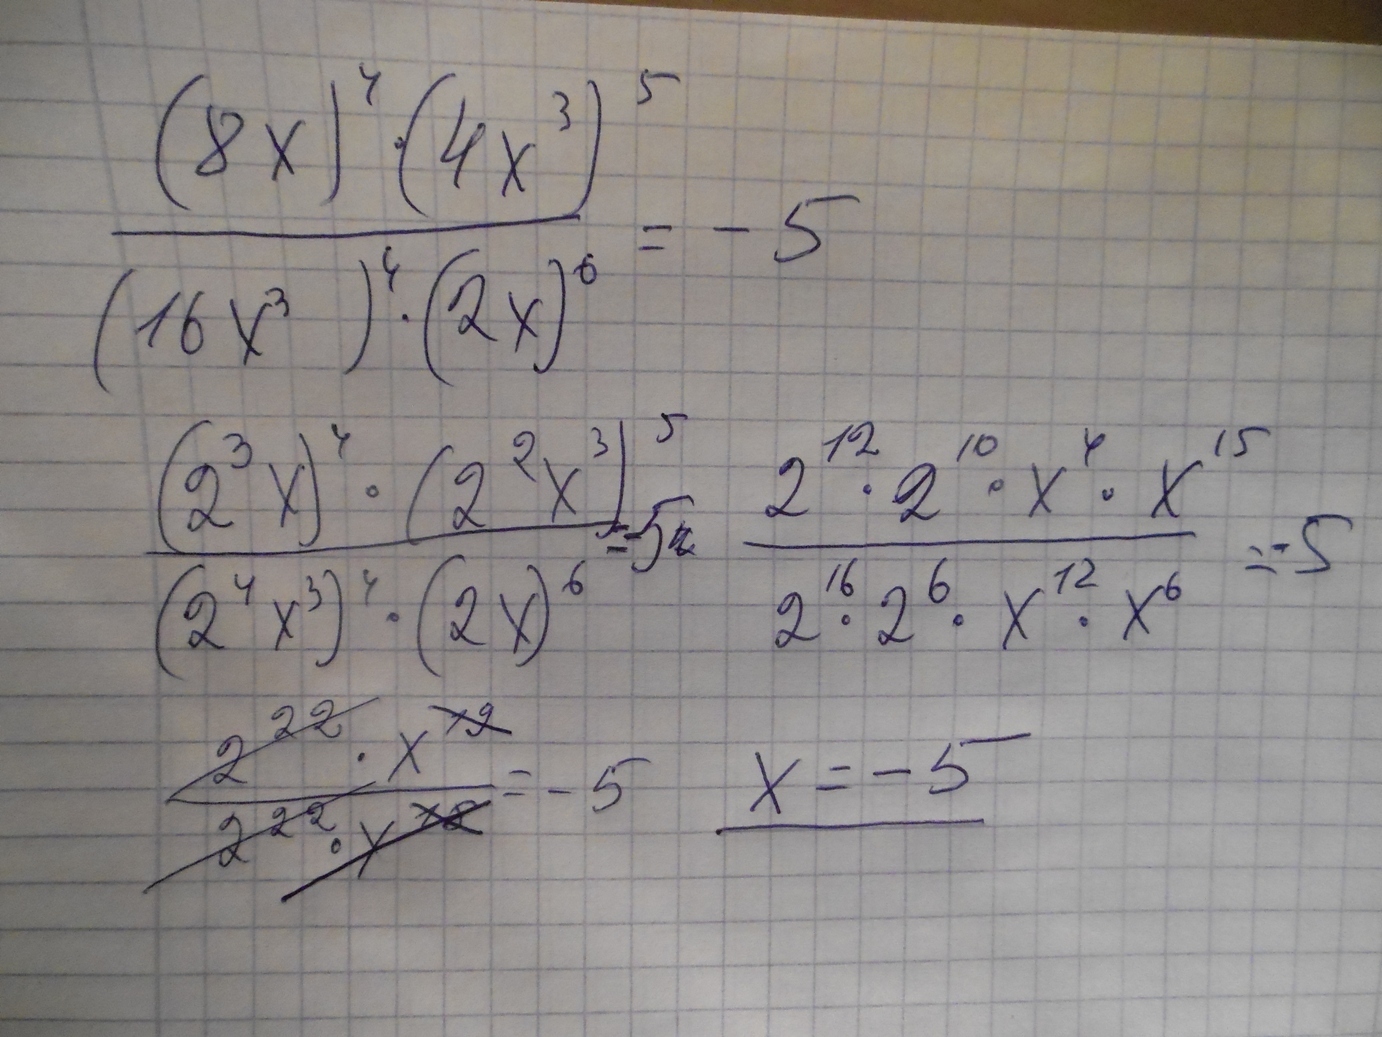 (8x)⁴·(4x³)⁵
(16x³)⁴·(2x)⁶
= -5
(2³x)⁴·(2²x³)⁵
(2⁴x³)⁴·(2x)⁶
=-5
2¹²·2¹⁰·x⁴·x¹⁵
2¹⁶·2⁶·x¹²·x⁶
=-5
2²²·x
2²²·x
= -5
x = -5